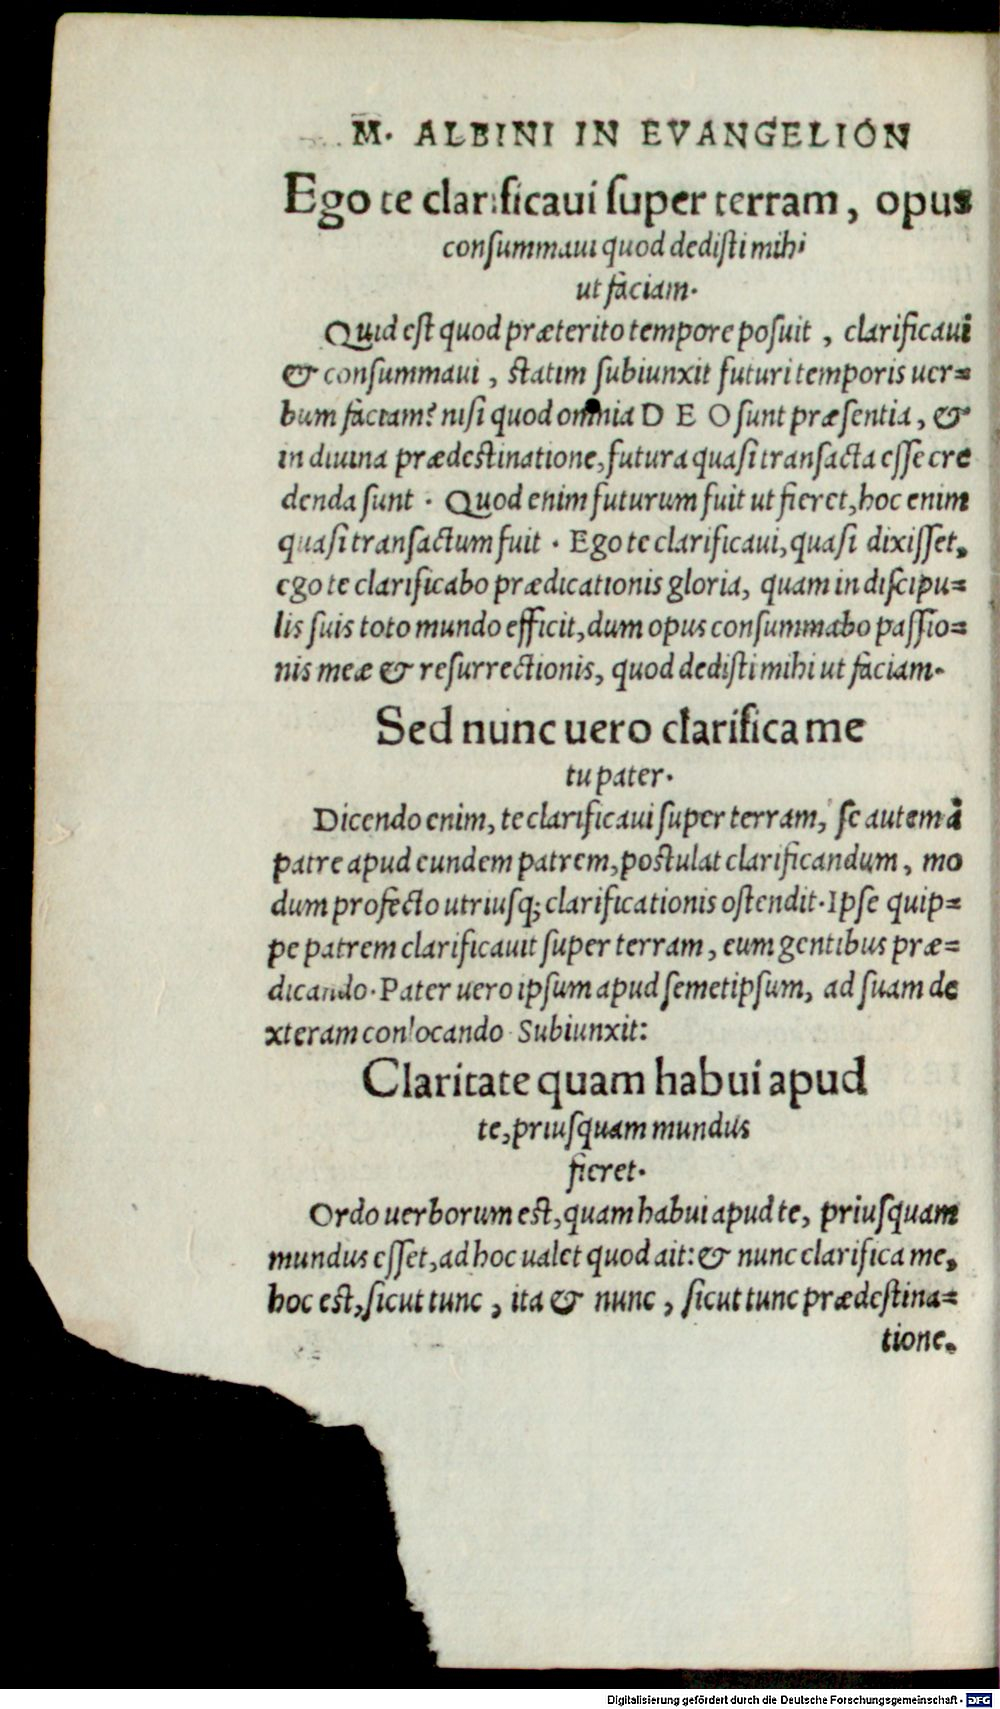 M. ALBINI IN EVANGELION
Ego te clarificaui ſuper terram, opus
conſummaui quod dediſti mihi
ut faciam.
Quid eſt quod præterito tempore poſuit, clarificaui
& conſummaui, ſtatim ſubiunxit futuri temporis uer=
bum faciam? niſi quod omnia D E O ſunt præſentia, &
in diuina prædeſtinatione, futura quaſi tranſacta eſſe cre
denda ſunt. Quod enim futurum fuit ut fieret, hoc enim
quaſi tranſactum fuit. Ego te clarificaui, quaſi dixiſſet,
ego te clarificabo prædicationis gloria, quam in diſcipu=
lis ſuis toto mundo efficit, dum opus conſummabo paſſio=
nis meæ & reſurrectionis, quod dediſti mihi ut faciam.
Sed nunc uero clarifica me
tu pater.
Dicendo enim, te clarificaui ſuper terram, ſe autem à
patre apud eundem patrem, poſtulat clarificandum, mo
dum profecto utriuſq; clarificationis oſtendit. Ipſe quip=
pe patrem clarificauit ſuper terram, eum gentibus præ=
dicando. Pater uero ipſum apud ſemetipſum, ad ſuam de
xteram conlocando Subiunxit:
Claritate quam habui apud
te, priuſquam mundus
fieret.
Ordo uerborum eſt, quam habui apud te, priuſquam
mundus eſſet, ad hoc ualet quod ait: & nunc clarifica me,
hoc eſt, ſicut tunc, ita & nunc, ſicut tunc prædeſtina=
tione.
Digitalisierung gefördert durch die Deutsche Forschungsgemeinschaft - DFG